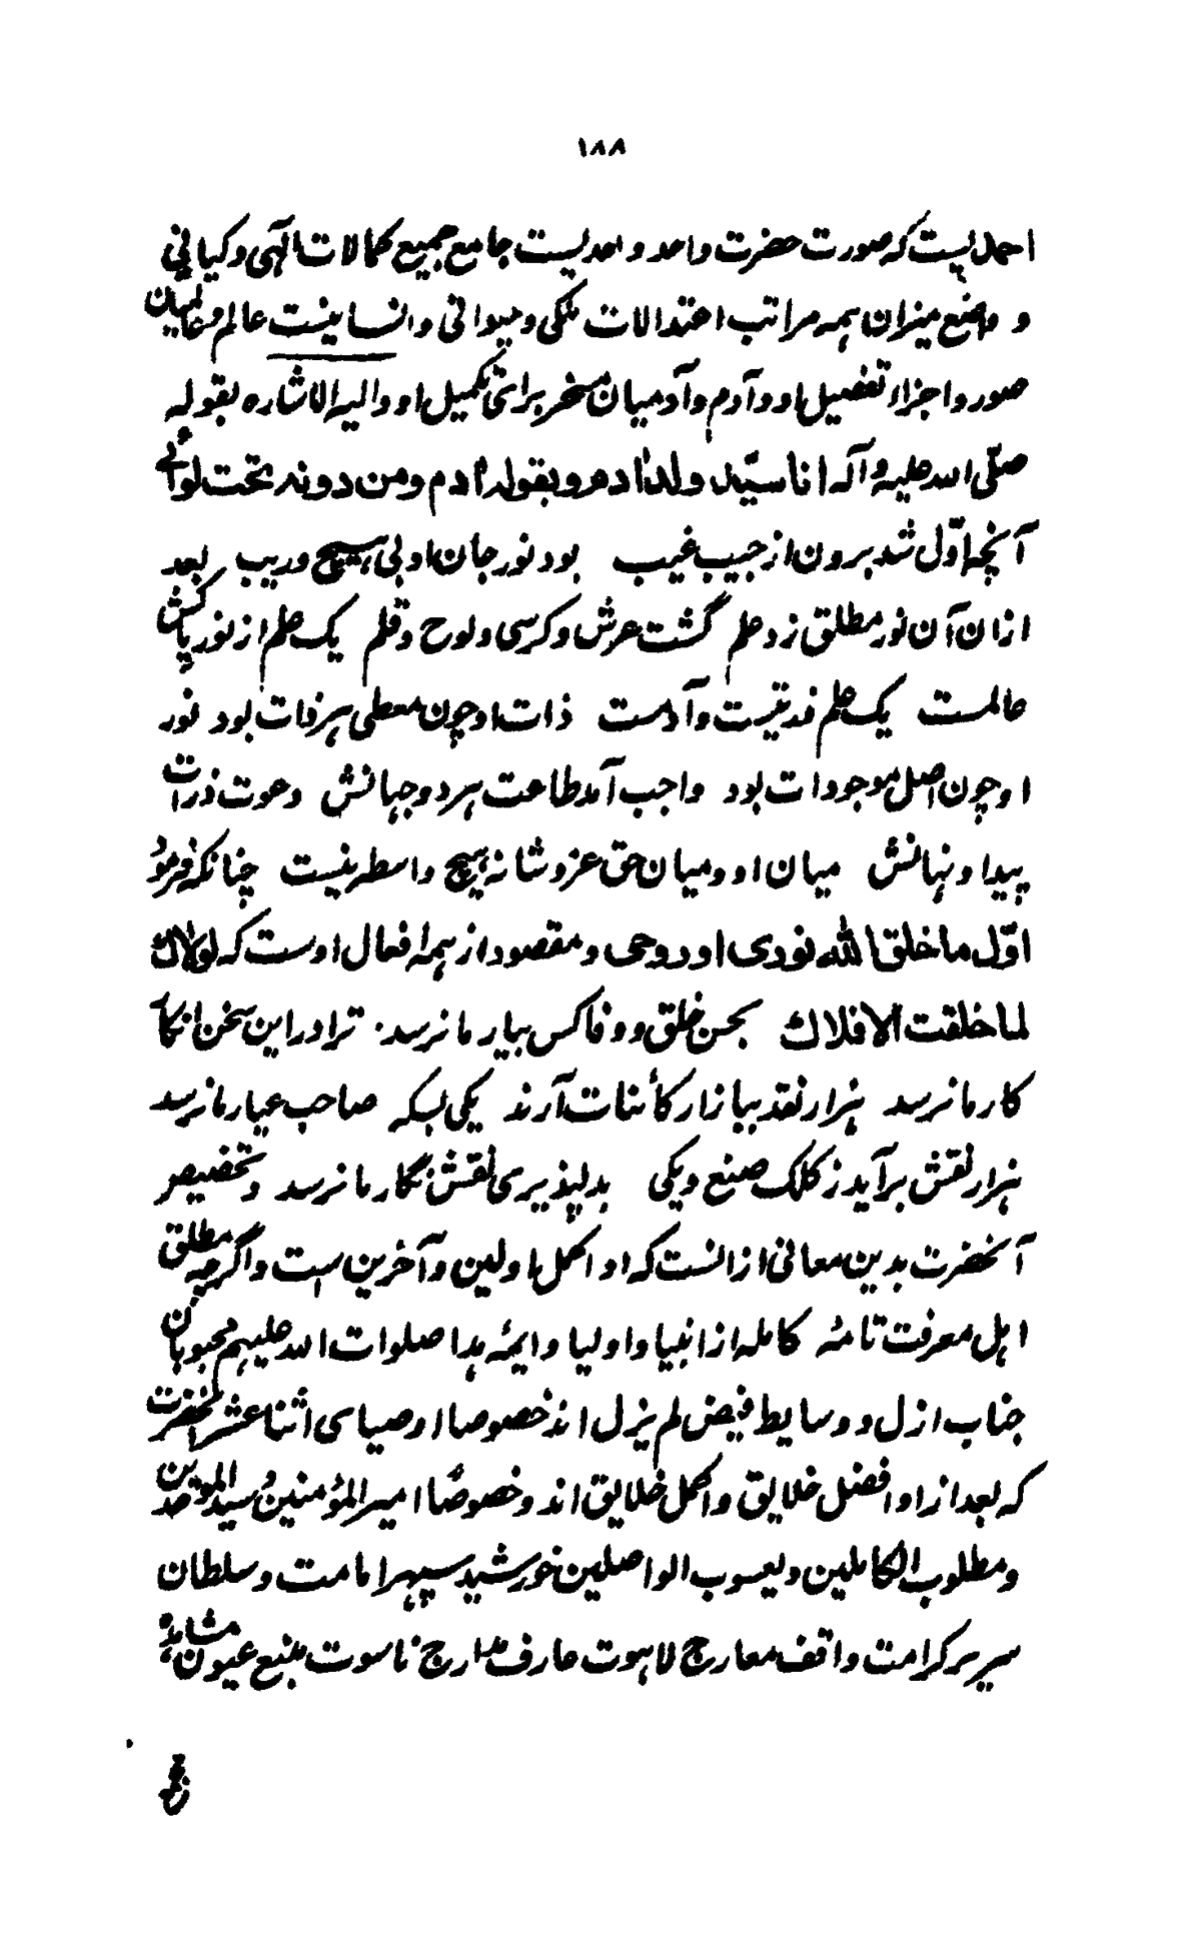 ۱۸۸
احمدیست که صورت حضرت واحد و احدیست جامع جمیع کمالات الهی و کیانی
و واضع میزان همه مراتب اعتدالات ملکی و حیوانی و انسانیت عالم و عالمیان
صور و اجزاء تفصیل او و آدم و آدمیان مسخر برای تکمیل او و الیه الاشاره بقوله
صلّی الله علیه و آله انا سیّد ولد آدم و بقوله آدم و من دونه تحت لوائی
آنچه اوّل شد برون از جیب غیب بود نور جان او بی هیچ و ریب بعد
ازان آن نور مطلق زد علم گشت عرش و کرسی و لوح و قلم یک علم از نور پاکش
عالمست یک علم ذریتست و آدمست ذات او چون معطی هر ذات بود نور
او چون اصل موجودات بود واجب آمد طاعت هر دو جهانش دعوت ذرات
پیدا و نهانش میان او و میان حق عز و شانه هیچ واسطه نیست چنانکه فرمود
اوّل ما خلق الله نوری او روحی و مقصود از همه افعال اوست که لولاک
لما خلقت الافلاک بحسن خلق و وفا کس بیار ما نرسد ترا در این سخن انکار
کار ما نرسد هزار نقد ببازار کائنات آرند یکی بسکه صاحب عیار ما نرسد
هزار نقش برآید ز کلک صنع و یکی بدلپذیری نقش نگار ما نرسد و تخصیص
آنحضرت بدین معانی ازانست که او اکمل اولین و آخرین است و اگرچه مطلق
اهل معرفت تامهٔ کامله از انبیا و اولیا و ایمهٔ هدا صلوات الله علیهم محبوبان
جناب ازل و وسایط فیض لم یزل اند خصوصا اوصیای اثنا عشر آنحضرت
که بعد از او افضل خلایق و اکمل خلایق اند و خصوصًا امیر المؤمنین و سید الموحدین
و مطلوب الکاملین و یعسوب الواصلین خورشید سپهر امامت و سلطان
سریر کرامت واقف معارج لاهوت عارف مدارج ناسوت منبع عیون مشاهده